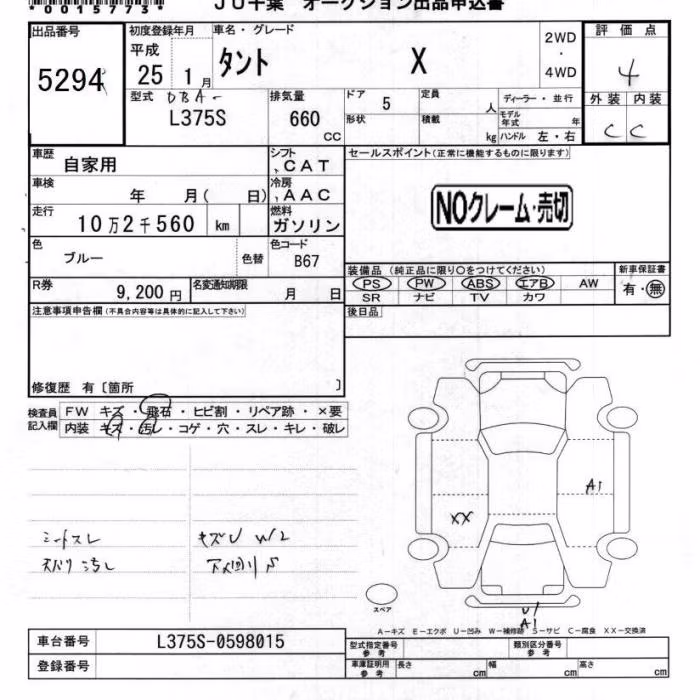 *00157773*
JU千葉 オークション出品申込書
出品番号
5294
初度登録年月
平成
25 1月
車名・グレード
タント X
2WD
・
4WD
評価点
4
外装 内装
C C
型式 DBA-
L375S
排気量
660
cc
ドア 5
定員
人
形状
積載
kg
ディーラー・並行
モデル年式
年
ハンドル 左・右
車歴
自家用
シフト
CAT
車検
年 月( 日)
冷房
AAC
走行
10万2千560 km
燃料
ガソリン
色
ブルー
色替
色コード
B67
R券
9,200円
名変通知期限
月 日
セールスポイント(正常に機能するものに限ります)
NOクレーム・売切
装備品 (純正品に限り○をつけてください)
PS PW ABS エアB AW
SR ナビ TV カワ
新車保証書
有・無
後日品
注意事項申告欄(不具合内容等は具体的に記入して下さい)
修復歴 有〔箇所 〕
検査員
記入欄
FW キズ・飛石・ヒビ割・リペア跡・×要
内装 キズ・汚レ・コゲ・穴・スレ・キレ・破レ
シートスレ
キズU W2
A1
XX
スペア
U1
A1
A-キズ E-エクボ U-凹み W-補修跡 S-サビ C-腐食 XX-交換済
車台番号 L375S-0598015
登録番号
型式指定番号
参考
類別区分番号
参考
車庫証明用
参考
長さ cm
幅 cm
高さ cm